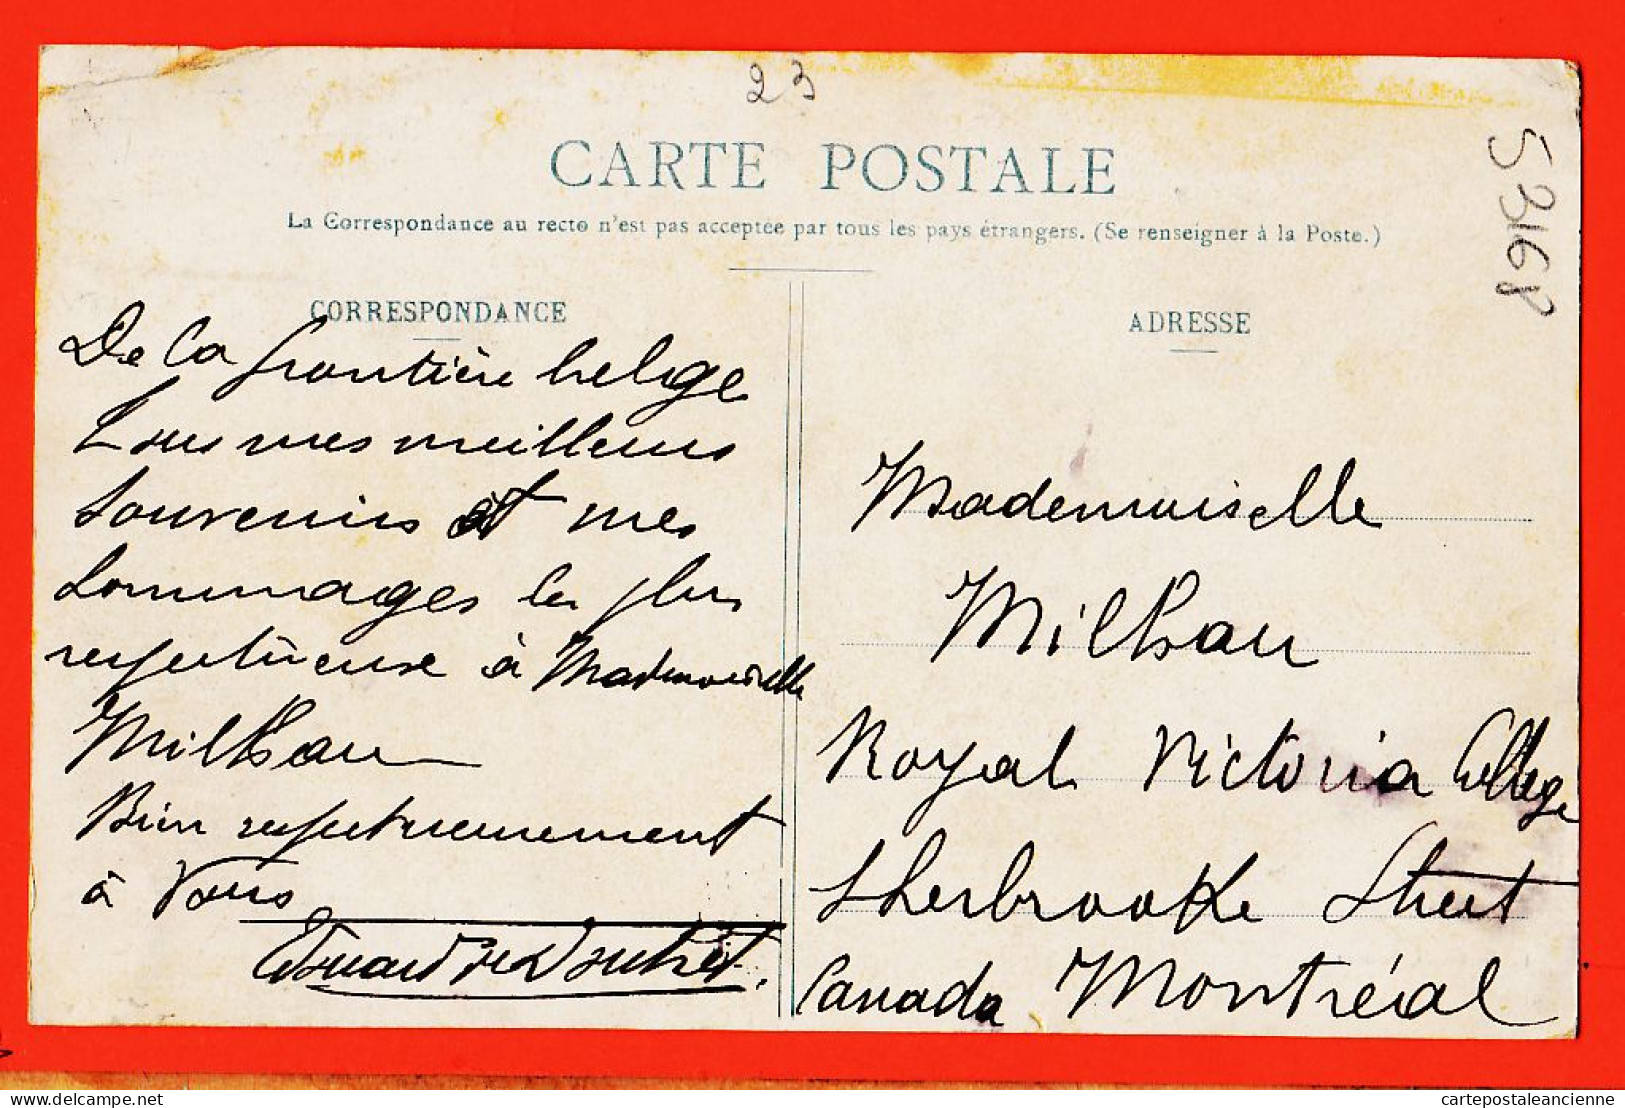 23
53168
CARTE POSTALE
La Correspondance au recto n'est pas acceptée par tous les pays étrangers. (Se renseigner à la Poste.)
CORRESPONDANCE
De la frontière belge
tous mes meilleurs
souvenirs et mes
hommages les plus
respectueuse à Mademoiselle
Milhau
Bien respectueusement
à Vous
Edouard
ADRESSE
Mademoiselle
Milhau
Royal Victoria College
Sherbrooke Street
Canada Montréal
cartepostaleancienne.com
delcampe.net